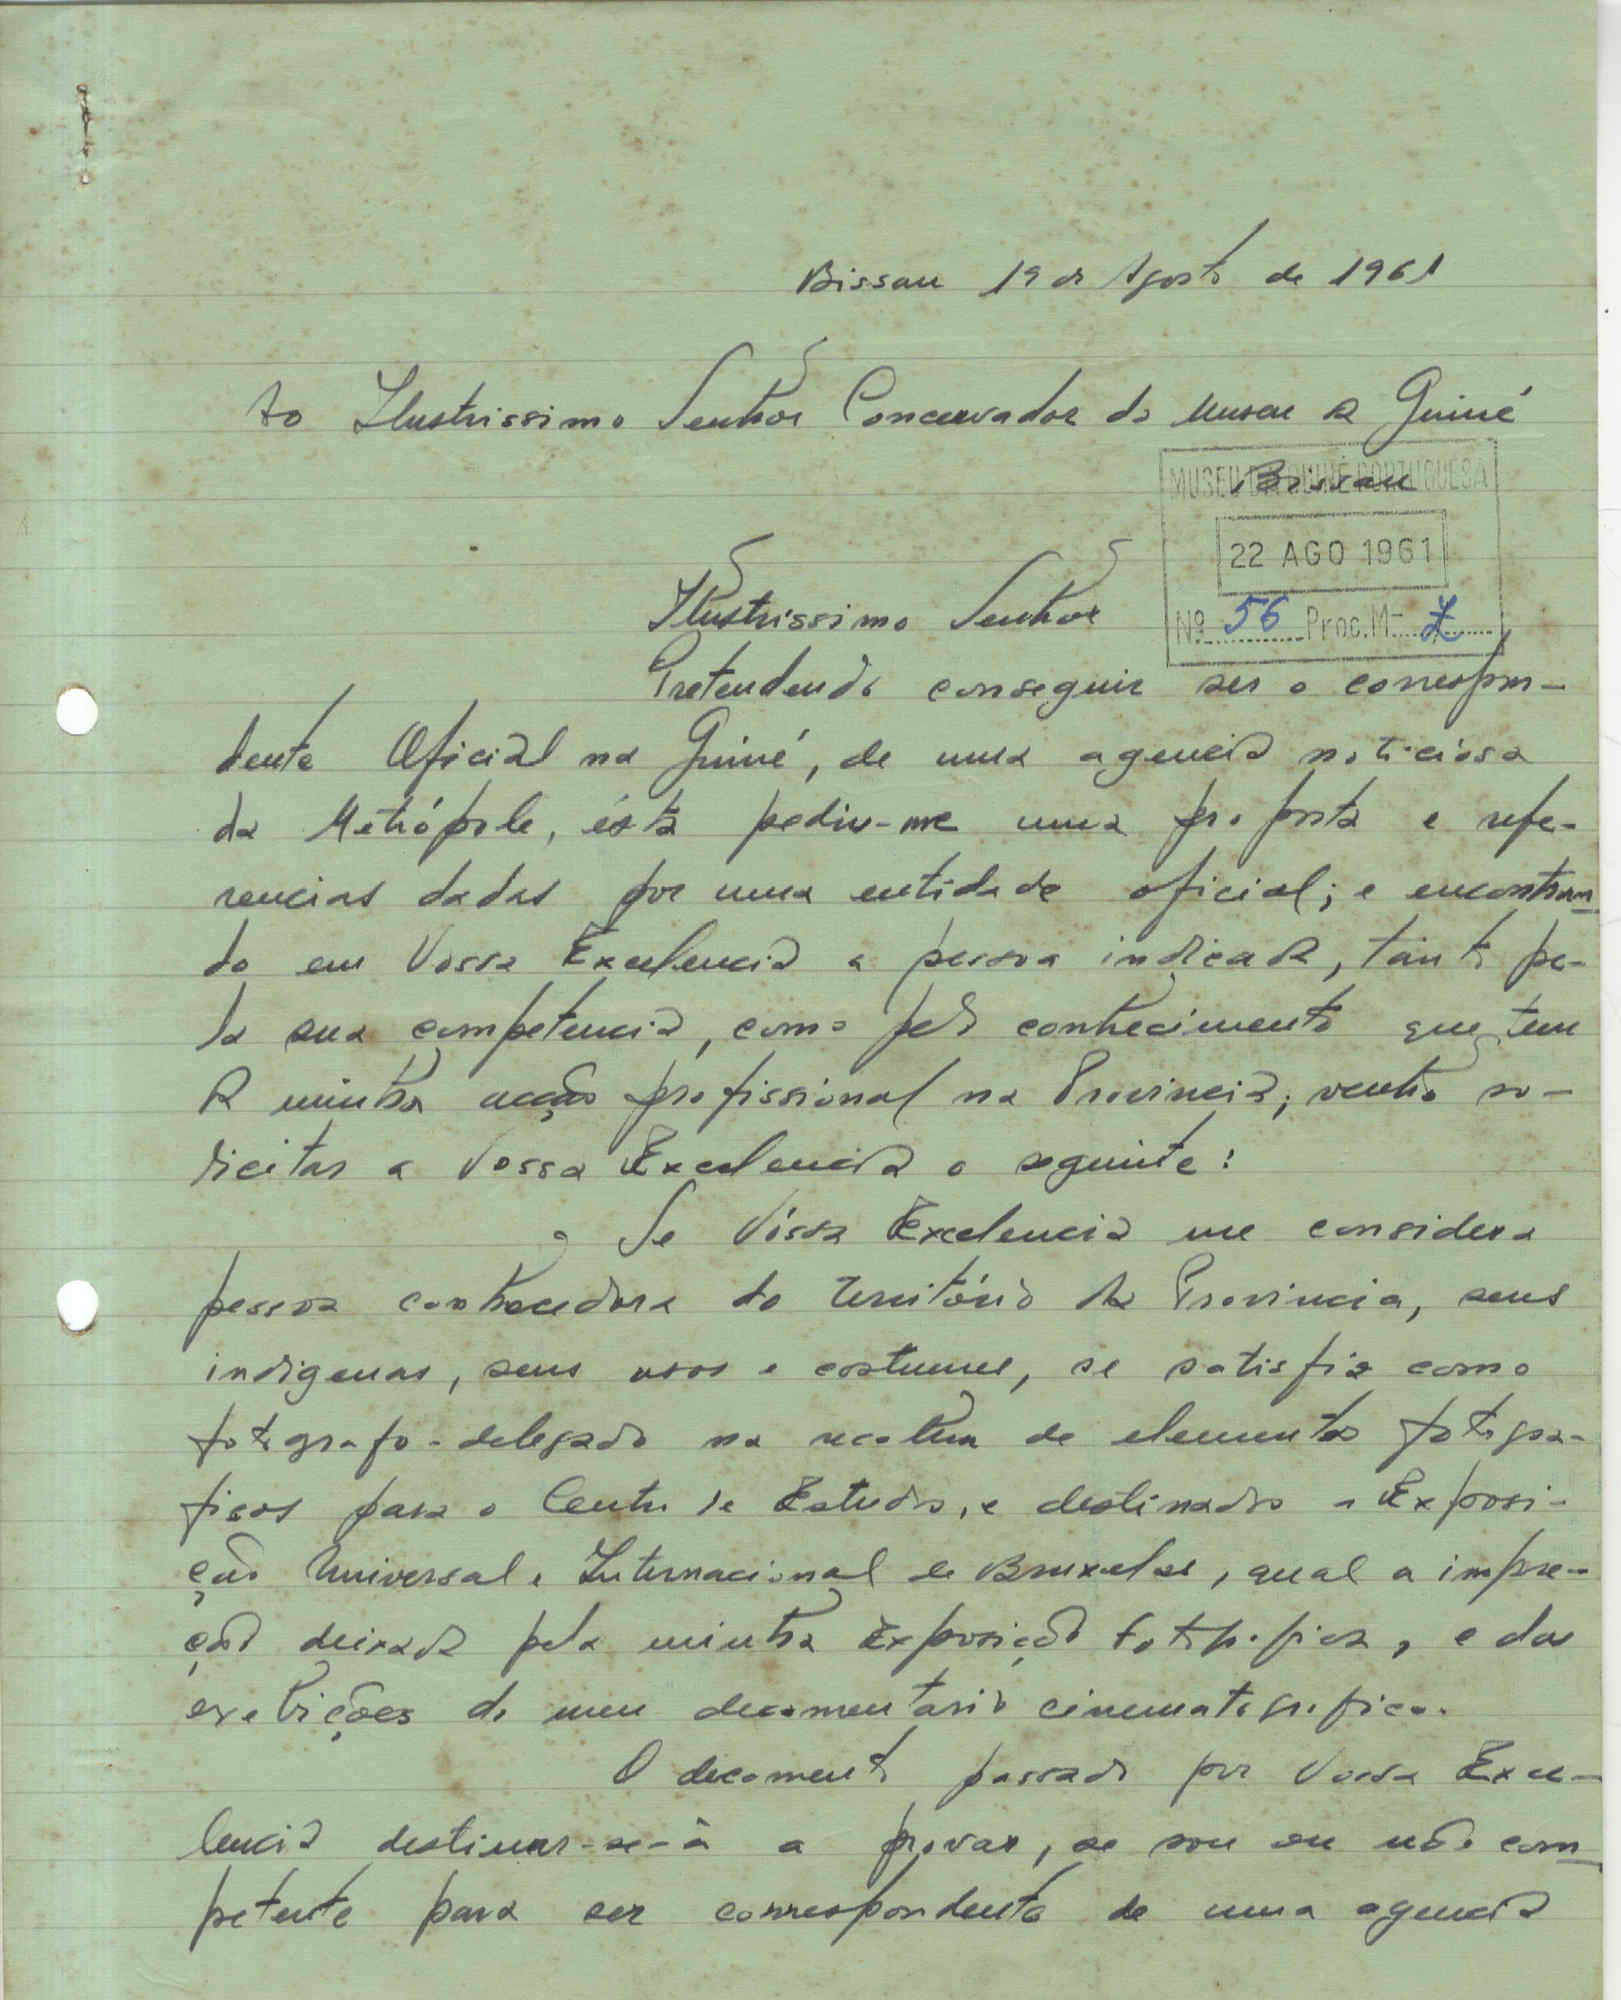 Bissau 19 de Agosto de 1961
Ao Ilustrissimo Senhor Concervador do Museu da Guiné
Bissau
MUSEU DA GUINÉ PORTUGUESA
22 AGO 1961
Nº 56 Proc. M- Z
Ilustrissimo Senhor
Pretendendo conseguir ser o correspon-
dente Oficial na Guiné, de uma agencia noticiosa
da Metrópole, ésta pediu-me uma proposta e refe-
rencias dadas por uma entidade oficial; e encontran-
do em Vossa Excelencia a pessoa indicada, tanto pe-
la sua competencia, como pelo conhecimento que tem
da minha acção profissional na Provincia; venho so-
licitar a Vossa Excelencia o seguinte:
Se Vóssa Excelencia me considera
pessoa conhecedora do território da Provincia, seus
indigenas, seus usos e costumes, se satisfiz como
fotografo-delegado na recolha de elementos fotogra-
ficos para o Centro de Estudos, e destinados a Exposi-
ção Universal e Internacional de Bruxelas, qual a impre-
ção deixada pela minha Exposição fotografica, e das
exebições do meu decomentario cinematografico.
O decomento passado por Vossa Exce-
lencia destinar-se-à a provar, se sou ou não com-
petente para ser correspondente de uma agencia